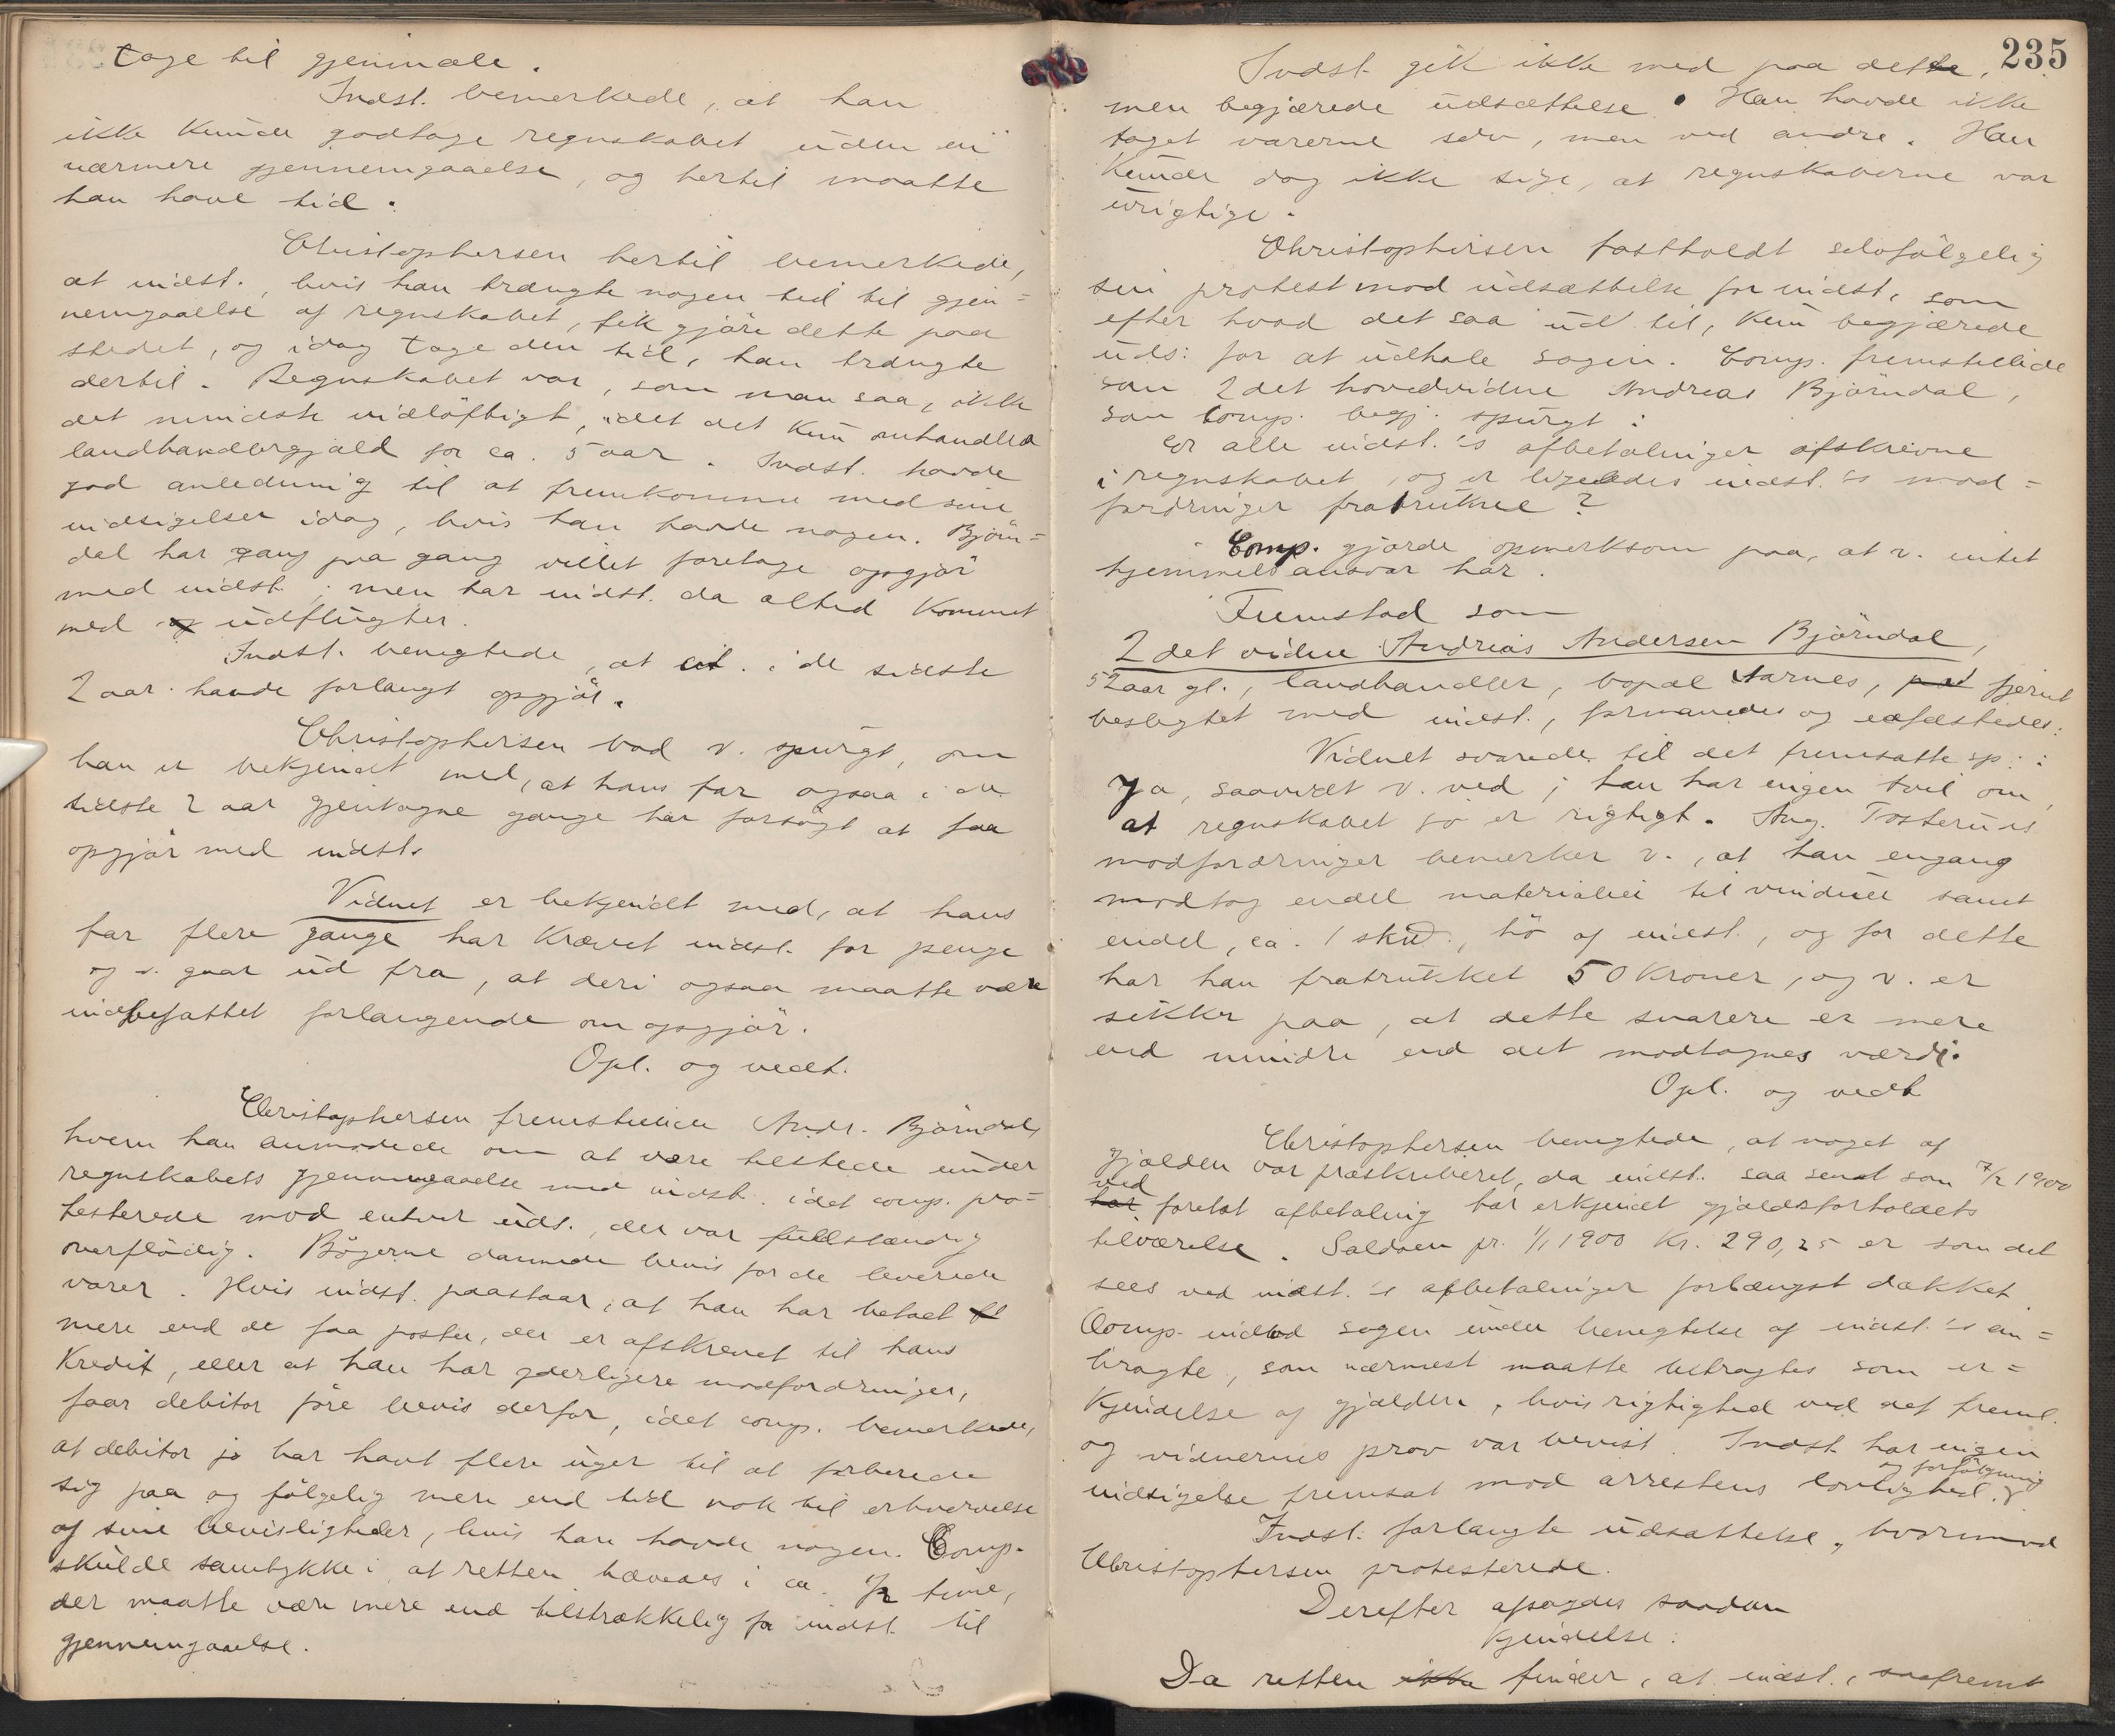 tage til gjenmæle.
Indst. bemerkede, at han
ikke kunde godtage regnskabet uden en
nærmere gjennemgaaelse, og hertil maatte
han have tid.
Christophersen hertil bemerkede,
at indst., hvis han trængte nogen tid til gjen=
nemgaaelse af regnskabet, fik gjøre dette paa
stedet, og idag tage den tid, han trængte
dertil. Regnskabet var, som man saa, ikke
det mindste vidløftigt, idet det kun omhandled
landhandlergjæld for ca. 5 aar. Indst. havde
god anledning til at fremkomme med sine
indsigelser idag, hvis han havde nogen. Bjørn=
dal har gang paa gang villet foretage opgjør
med indst., men har indst. da altid kommet
med udflugter.
Indst. benegtede, at cit. i de sidste
2 aar havde forlangt opgjør.
Christophersen bad v. spurgt, om
han er bekjendt med, at hans far ogsaa i de
sidste 2 aar gjentagne gange har forsøgt at faa
opgjør med indst.
Vidnet er bekjendt med, at hans
far flere gange har krævet indst. for penge
og v. gaar ud fra, at deri ogsaa maatte være
indbefattet forlangende om opgjør.
Opl. og vedt.
Christophersen fremstillede Andr. Bjørndal,
hvem han anmodede om at være tilstede under
regnskabets gjennemgaaelse med indst. idet comp. pro=
testerede mod enhver uds., der var fuldstændig
overflødig. Bøgerne dannede bevis for de leverede
varer. Hvis indst. paastaar, at han har betalt
mere end de faa poster, der er afskrevet til hans
Kredit, eller at han har yderligere modfordringer,
faar debitor føre bevis derfor, idet comp. bemerkede,
at debitor jo har havt flere uger til at forberede
sig paa og følgelig mere end tid nok til erhvervelse
af sine bevisligheder, hvis han havde nogen. Comp.
skulde samtykke i at retten hævedes i ca. 1/2 time,
der maatte være mere end tilstrækkelig for indst. til
gjennemgaaelse.
235
Indst. gik ikke med paa dette,
men begjærede udsættelse. Han havde ikke
taget varerne selv, men ved andre. Han
kunde dog ikke sige, at regnskaberne var
urigtige.
Christophersen fastholdt selvfølgelig
sin protest mod udsættelse for indst., som
efter hvad det saa ud til, kun begjærede
uds: for at udhale sagen. Comp. fremstillede
som 2det hovedvidne Andreas Bjørndal,
som comp. begj. spurgt:
Er alle indst.'s afbetalinger afskrevne
i regnskabet, og er ligeledes indst.'s mod=
fordringer fratrukne?
Comp. gjorde opmerksom paa, at v. intet
hjemmelsansvar har.
Fremstod som
2det vidne Andreas Andersen Bjørndal,
52 aar gl., landhandler, bopæl Aarnes, fjernt
beslegtet med indst., formanedes og edfæstedes:
Vidnet svarede til det fremsatte sp.:
Ja, saavidt v. ved; han har ingen tvil om,
at regnskabet jo er rigtigt. Ang. Tosteruds
modfordringer bemerker v., at han engang
modtog endel materialier til vinduer samt
endel, ca. 1 skud., hø af indst., og for dette
har han fratrukket 50 kroner, og v. er
sikker paa, at dette snarere er mere
end mindre end det modtagnes værdi.
Opl. og vedt
Christophersen benegtede, at noget af
gjælden var præskriberet, da indst. saa sent som 7/2 1900
ved foretat afbetaling har erkjendt gjældsforholdets
tilværelse. Saldoen pr. 1/1 1900 Kr. 290,25 er som det
sees ved indst.'s afbetalinger forlængst dækket.
Comp. indlod sagen under benegtelse af indst.'s an=
bragte, som nærmest maatte betragtes som er=
kjendelse af gjælden, hvis rigtighed ved det freml.
og vidnernes prov var bevist. Indst. har ingen
og forfølgning
indsigelse fremsat mod arrestens lovlighed.
Indst. forlangte udsættelse, hvorimod
Christophersen protesterede.
Derefter afsagdes saadan
Kjendelse:
Da retten finder, at indst., saafremt